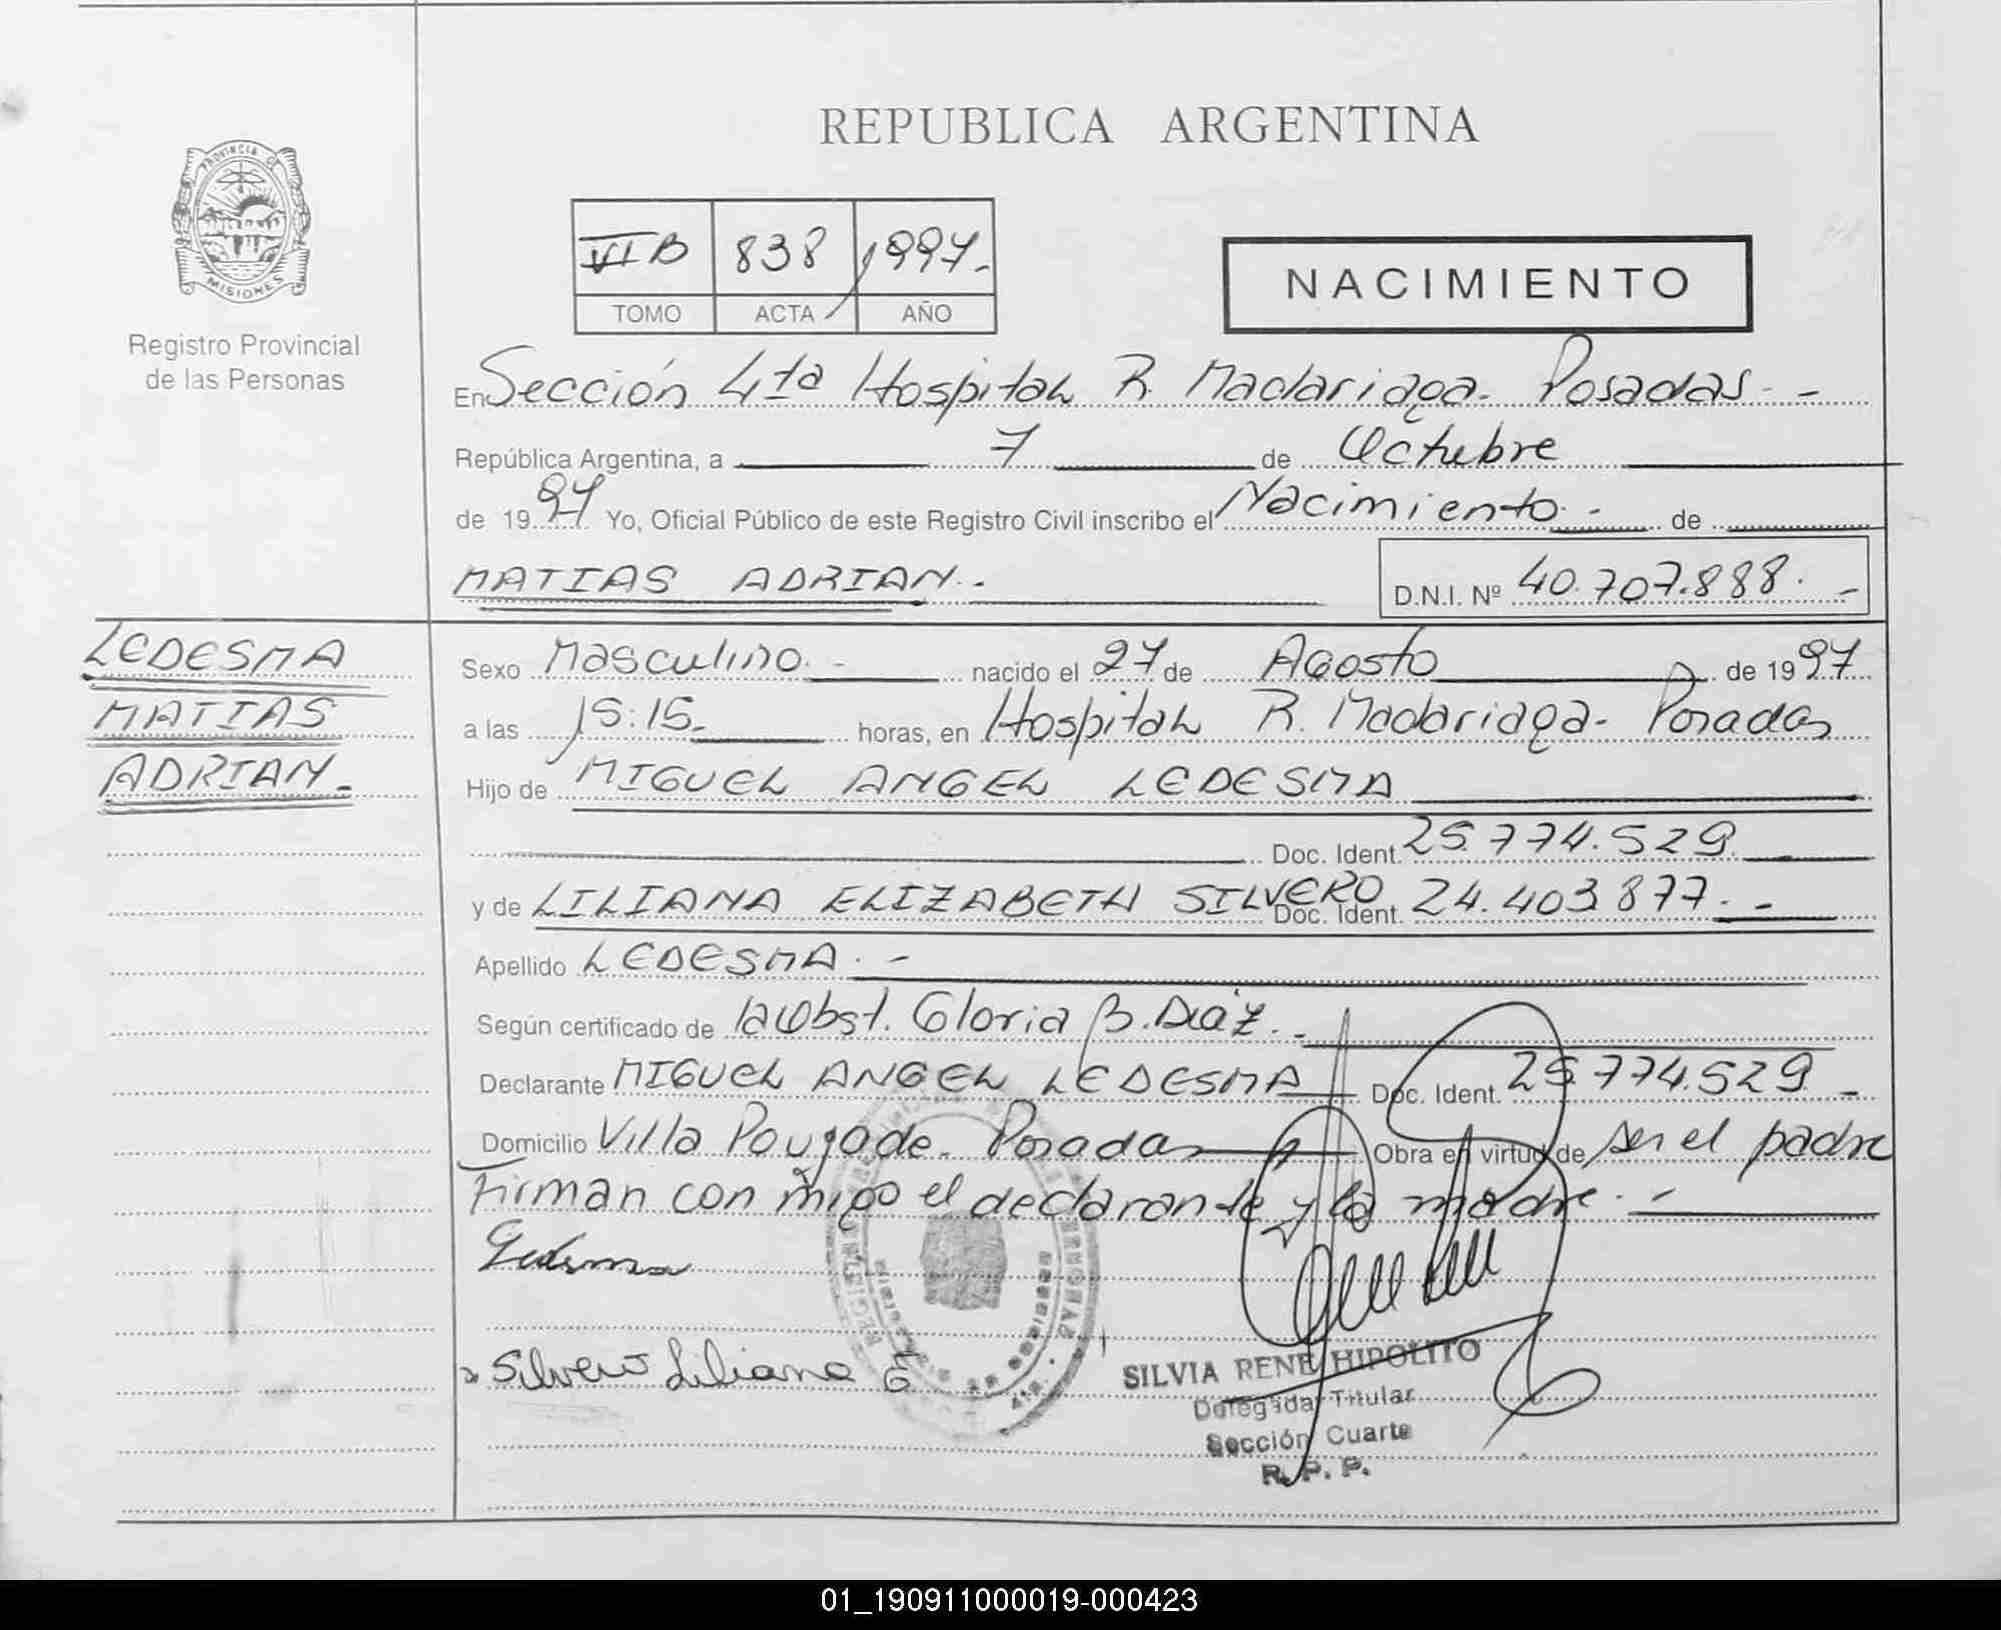 REPUBLICA ARGENTINA
PROVINCIA DE
MISIONES
Registro Provincial
de las Personas
VI B 838 1997.-
TOMO ACTA AÑO
NACIMIENTO
En Sección 4ta Hospital R. Madariaga. Posadas.- -
República Argentina, a 7 de Octubre
de 1997 Yo, Oficial Público de este Registro Civil inscribo el Nacimiento.- de
MATIAS ADRIAN.- D.N.I. Nº 40.707.888.-
LEDESMA
MATIAS
ADRIAN.-
Sexo Masculino.- nacido el 27 de Agosto de 1997
a las 15:15.- horas, en Hospital R. Madariaga- Posadas
Hijo de MIGUEL ANGEL LEDESMA
Doc. Ident. 25.774.529
y de LILIANA ELIZABETH SILVERO Doc. Ident. 24.403.877.-
Apellido LEDESMA.-
Según certificado de Gloria B. Diáz.-
Declarante MIGUEL ANGEL LEDESMA Doc. Ident. 25.774.529 -
Domicilio Villa Posadas Obra en virtud de ser el padre
Firman con migo el declarante y la madre.-
Ledesma
Silvero Liliana E
SILVIA RENE HIPOLITO
Delegada Titular
Sección Cuarta
R. P. P.
01_190911000019-000423